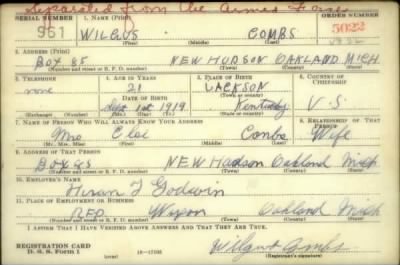 Separated from the Armed Forces
SERIAL NUMBER 1. NAME (Print) ORDER NUMBER
961 WILGUS COMBS 5022
(First) (Middle) (Last)
2. ADDRESS (Print)
BOX 85 NEW HUDSON OAKLAND MICH
(Number and street or R. F. D. number) (Town) (County) (State)
3. TELEPHONE 4. AGE IN YEARS 5. PLACE OF BIRTH 6. COUNTRY OF CITIZENSHIP
none 21 JACKSON
DATE OF BIRTH (Town or county)
Sept 1st 1919 Kentucky U.S.
(Exchange) (Number) (Mo.) (Day) (Yr.) (State or country)
7. NAME OF PERSON WHO WILL ALWAYS KNOW YOUR ADDRESS 8. RELATIONSHIP OF THAT PERSON
Mrs Combs Wife
(Mr., Mrs., Miss) (First) (Middle) (Last)
9. ADDRESS OF THAT PERSON
BOX 85 NEW Hudson Oakland Mich
(Number and street or R. F. D. number) (Town) (County) (State)
10. EMPLOYER'S NAME
Hiram Godwin
11. PLACE OF EMPLOYMENT OR BUSINESS
RFD Wixom Oakland Mich
(Number and street or R. F. D. number) (Town) (County) (State)
I AFFIRM THAT I HAVE VERIFIED ABOVE ANSWERS AND THAT THEY ARE TRUE.
REGISTRATION CARD
D. S. S. Form 1 16—17105 Wilgus Combs
(Registrant's signature)